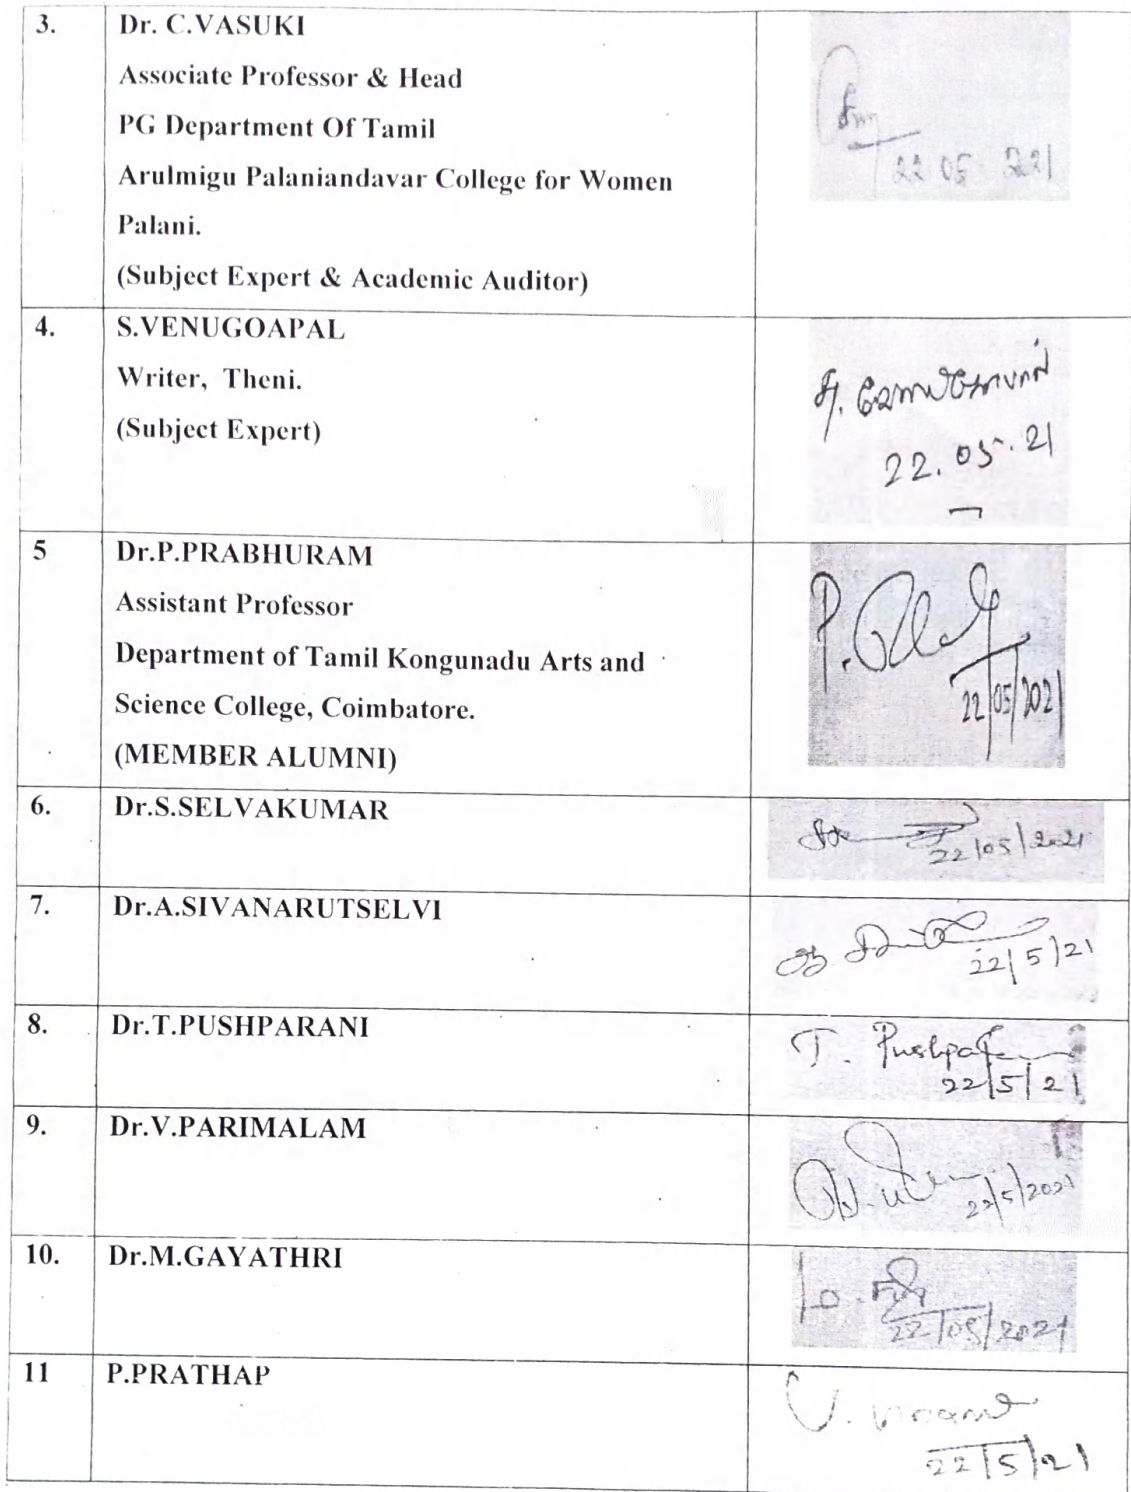 3. Dr. C.VASUKI
Associate Professor & Head
PG Department Of Tamil
Arulmigu Palaniandavar College for Women
Palani.
(Subject Expert & Academic Auditor)
22 05 2021
4. S.VENUGOAPAL
Writer, Theni.
(Subject Expert)
22.05.21
5 Dr.P.PRABHURAM
Assistant Professor
Department of Tamil Kongunadu Arts and
Science College, Coimbatore.
(MEMBER ALUMNI)
P.
22/05/2021
6. Dr.S.SELVAKUMAR
22/05/2021
7. Dr.A.SIVANARUTSELVI
22/5/21
8. Dr.T.PUSHPARANI
T.
22/5/21
9. Dr.V.PARIMALAM
22/5/2021
10. Dr.M.GAYATHRI
22/05/2021
11 P.PRATHAP
22/5/21